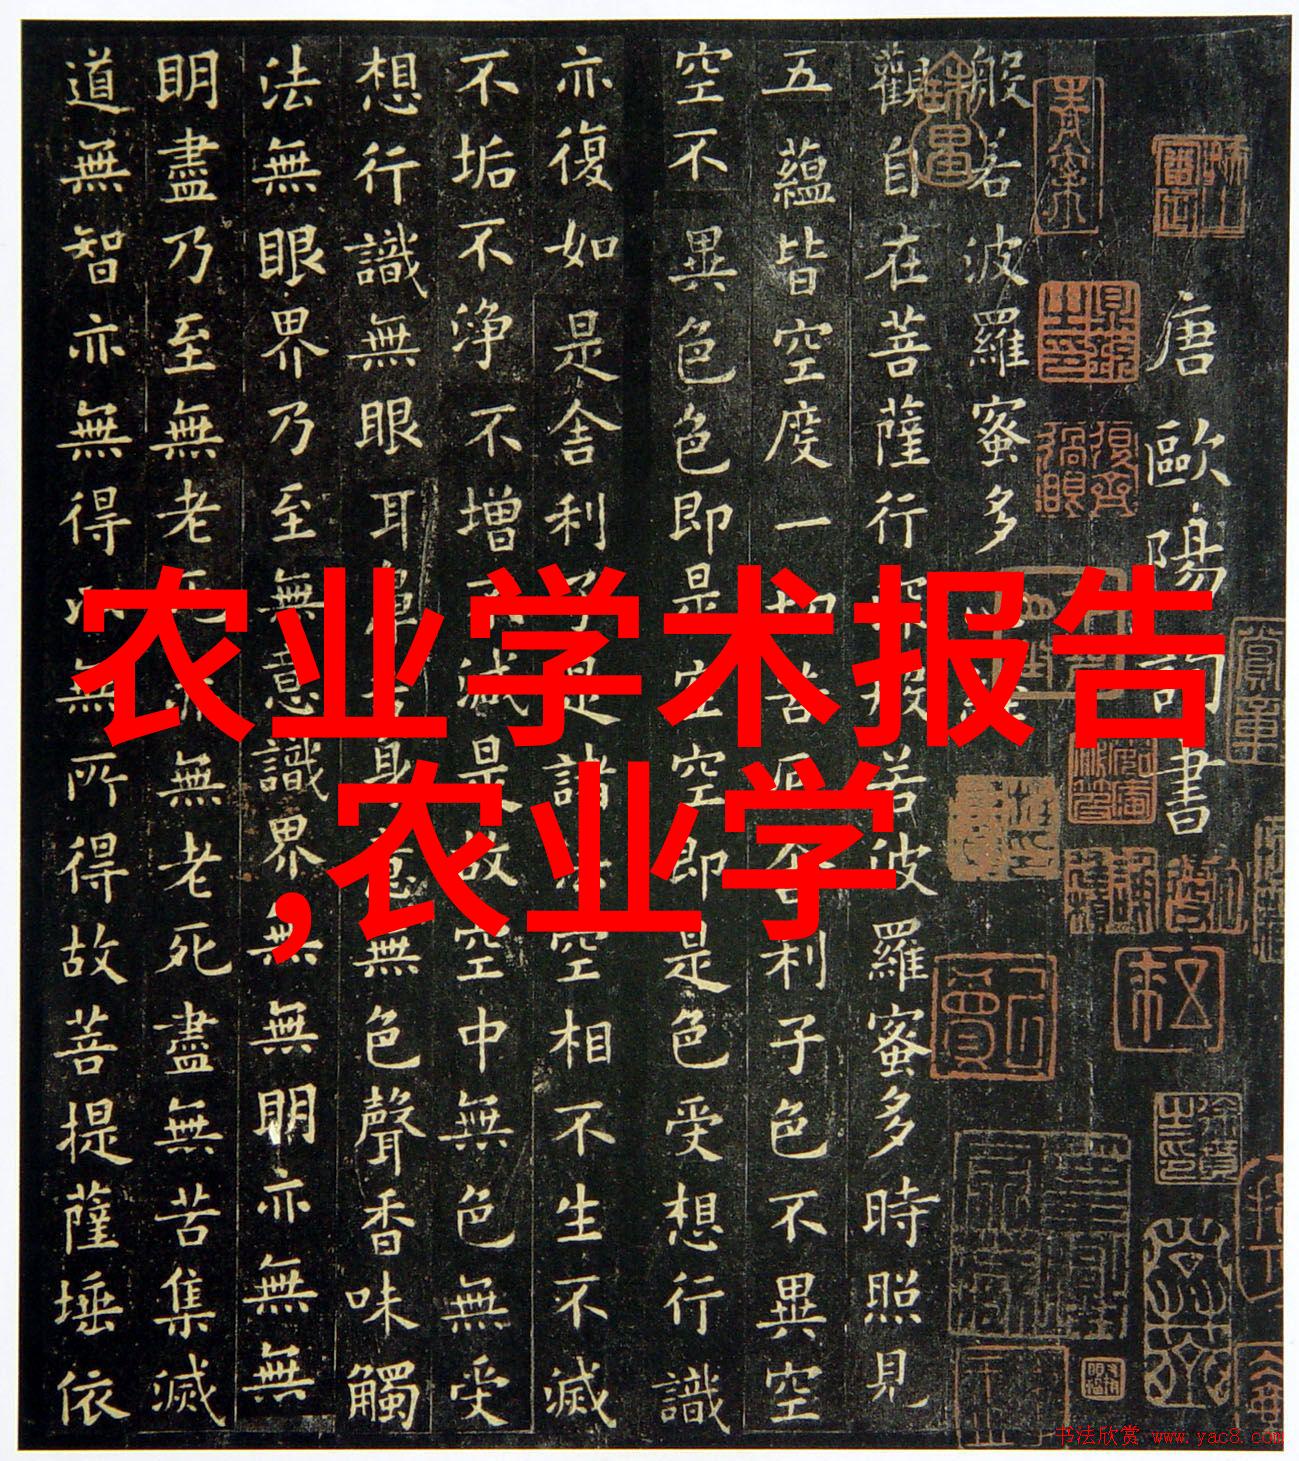 唐歐陽詢書
般若波羅蜜多
觀自在菩薩行深般若波羅蜜多時照見
五蘊皆空度一切苦厄舍利子色不異空
空不異色色即是空空即是色受想行識
亦復如是舍利子是諸法空相不生不滅
不垢不淨不增不減是故空中無色無受
想行識無眼耳鼻舌身意無色聲香味觸
法無眼界乃至無意識界無無明亦無無
明盡乃至無老死亦無老死盡無苦集滅
道無智亦無得以無所得故菩提薩埵依
农业学术报告
,农业学
书法欣赏 www.yac8.com